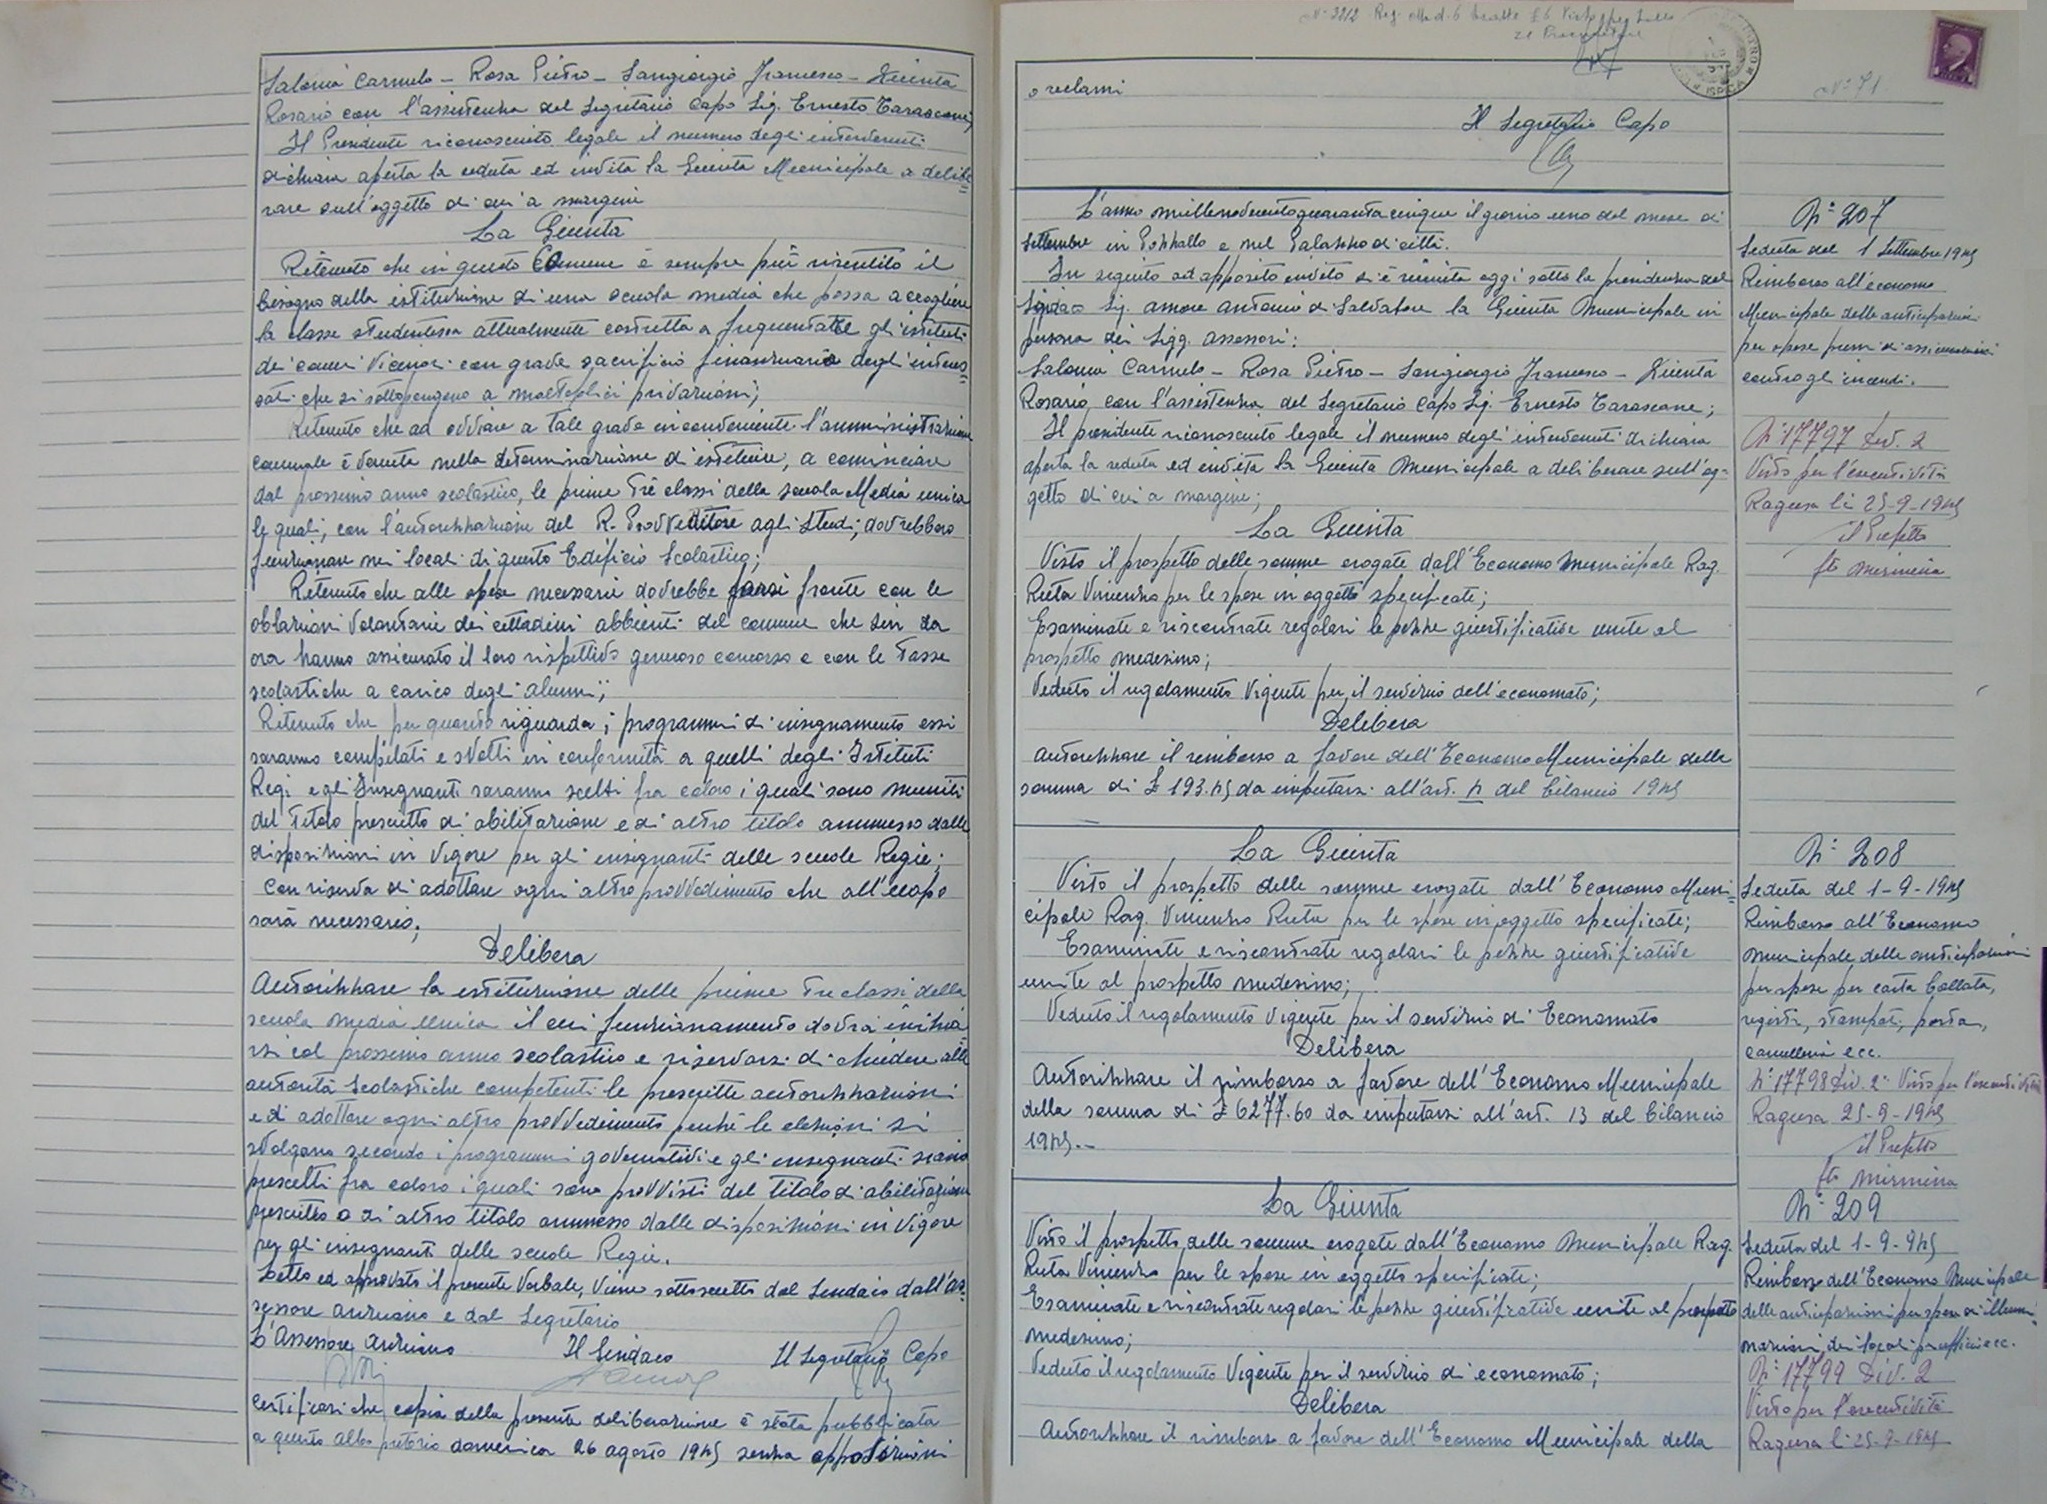 Salonia Carmelo - Rosa Pietro - Sangiorgio Francesco - Giunta
Rosario con l'assistenza del Segretario Capo Sig. Ernesto Tarascone;
Il Presidente riconosciuto legale il numero degli intervenuti
dichiara aperta la seduta ed invita la Giunta Municipale a delibe=
rare sull'oggetto di cui a margine
La Giunta
Ritenuto che in questo Comune è sempre più risentito il
bisogno della istituzione di una scuola media che possa accogliere
la classe studentessa attualmente costretta a frequentare gli istituti
dei comuni Viciniori con grave sacrificio finanziario degli interes=
sati che si sottopongono a molteplici privazioni;
Ritenuto che ad ovviare a tale grave inconveniente l'amministrazione
comunale è venuta nella determinazione di istituire, a cominciare
dal prossimo anno scolastico, le prime tre classi della scuola Media unica
le quali, con l'autorizzazione del R. Provveditore agli Studi, dovrebbero
funzionare nei locali di questo Edificio Scolastico;
Ritenuto che alle spese necessarie dovrebbe farsi fronte con le
oblazioni Volontarie dei cittadini abbienti del comune che sin da
ora hanno assicurato il loro rispettivo generoso concorso e con le Tasse
scolastiche a carico degli alunni;
Ritenuto che per quanto riguarda i programmi di insegnamento essi
saranno compilati e svolti in conformità a quelli degli Istituti
Regi e gli Insegnanti saranno scelti fra coloro i quali sono muniti
del Titolo prescritto di abilitazione e di altro titolo ammesso dalle
disposizioni in Vigore per gli insegnanti delle scuole Regie;
Con riserva di adottare ogni altro provvedimento che all'uopo
sarà necessario;
Delibera
Autorizzare la istituzione delle prime Tre classi della
scuola media unica il cui funzionamento dovrà inizia=
rsi col prossimo anno scolastico e riservarsi di chiedere alle
autorità Scolastiche competenti le prescritte autorizzazioni
e di adottare ogni altro provvedimento perché le lezioni si
svolgano secondo i programmi governativi e gli insegnanti siano
prescelti fra coloro i quali sono provvisti del titolo di abilitazione
prescritto o di altro titolo ammesso dalle disposizioni in Vigore
per gli insegnanti delle scuole Regie.
Letto ed approvato il presente Verbale, Viene sottoscritto dal Sindaco dall'As=
sessore anziano e dal Segretario
L'Assessore Anziano Il Sindaco Il Segretario Capo
Certificasi che copia della presente deliberazione è stata pubblicata
a questo albo pretorio domenica 26 agosto 1945 senza opposizioni
N° 2212 Reg.
o reclami
Il Segretario Capo
N° 71
L'anno millenovecentoquarantacinque il giorno uno del mese di
Settembre in Pozzallo e nel Palazzo di città.
In seguito ad apposito invito si è riunita oggi sotto la presidenza del
Sindaco Sig. Amore Antonio di Salvatore la Giunta Municipale in
persona dei Sigg. Assessori:
Salonia Carmelo - Rosa Pietro - Sangiorgio Francesco - Giunta
Rosario con l'assistenza del Segretario Capo Sig. Ernesto Tarascone;
Il presidente riconosciuto legale il numero degli intervenuti dichiara
aperta la seduta ed invita la Giunta Municipale a deliberare sull'og-
getto di cui a margine;
La Giunta
Visto il prospetto delle somme erogate dall'Economo Municipale Rag.
Ruta Vincenzo per le spese in oggetto specificate;
Esaminate e riscontrate regolari le pezze giustificative unite al
prospetto medesimo;
Veduto il regolamento Vigente per il servizio dell'economato;
Delibera
Autorizzare il rimborso a favore dell'Economo Municipale della
somma di £ 193.45 da imputarsi all'art. 4 del bilancio 1945
N° 207
Seduta del 1 Settembre 1945
Rimborso all'economo
Municipale delle anticipazioni
per spese premi di assicurazioni
contro gli incendi.
N° 17797 Div. 2
Visto per l'esecutività
Ragusa li 25-9-1945
il Prefetto
fto Mirmina
La Giunta
Visto il prospetto delle somme erogate dall'Economo Muni=
cipale Rag. Vincenzo Ruta per le spese in oggetto specificate;
Esaminate e riscontrate regolari le pezze giustificative
unite al prospetto medesimo;
Veduto il regolamento Vigente per il servizio di Economato
Delibera
Autorizzare il rimborso a favore dell'Economo Municipale
della somma di £ 6277.60 da imputarsi all'art. 13 del bilancio
1945.-
N° 208
Seduta del 1-9-1945
Rimborso all'Economo
Municipale delle anticipazioni
per spese per carta bollata,
registri, stampati, posta,
cancelleria ecc.
N° 17798 Div. 2° Visto per l'esecutività
Ragusa 25-9-1945
il Prefetto
fto Mirmina
La Giunta
Visto il prospetto delle somme erogate dall'Economo Municipale Rag.
Ruta Vincenzo per le spese in oggetto specificate;
Esaminate e riscontrate regolari le pezze giustificative unite al prospetto
medesimo;
Veduto il regolamento Vigente per il servizio di economato;
Delibera
Autorizzare il rimborso a favore dell'Economo Municipale della
N° 209
Seduta del 1-9-945
Rimborso dell'Economo Municipale
delle anticipazioni per spese di illumi=
nazioni dei locali per uffici ecc.
N° 17799 Div. 2
Visto per l'esecutività
Ragusa li 25-9-1945